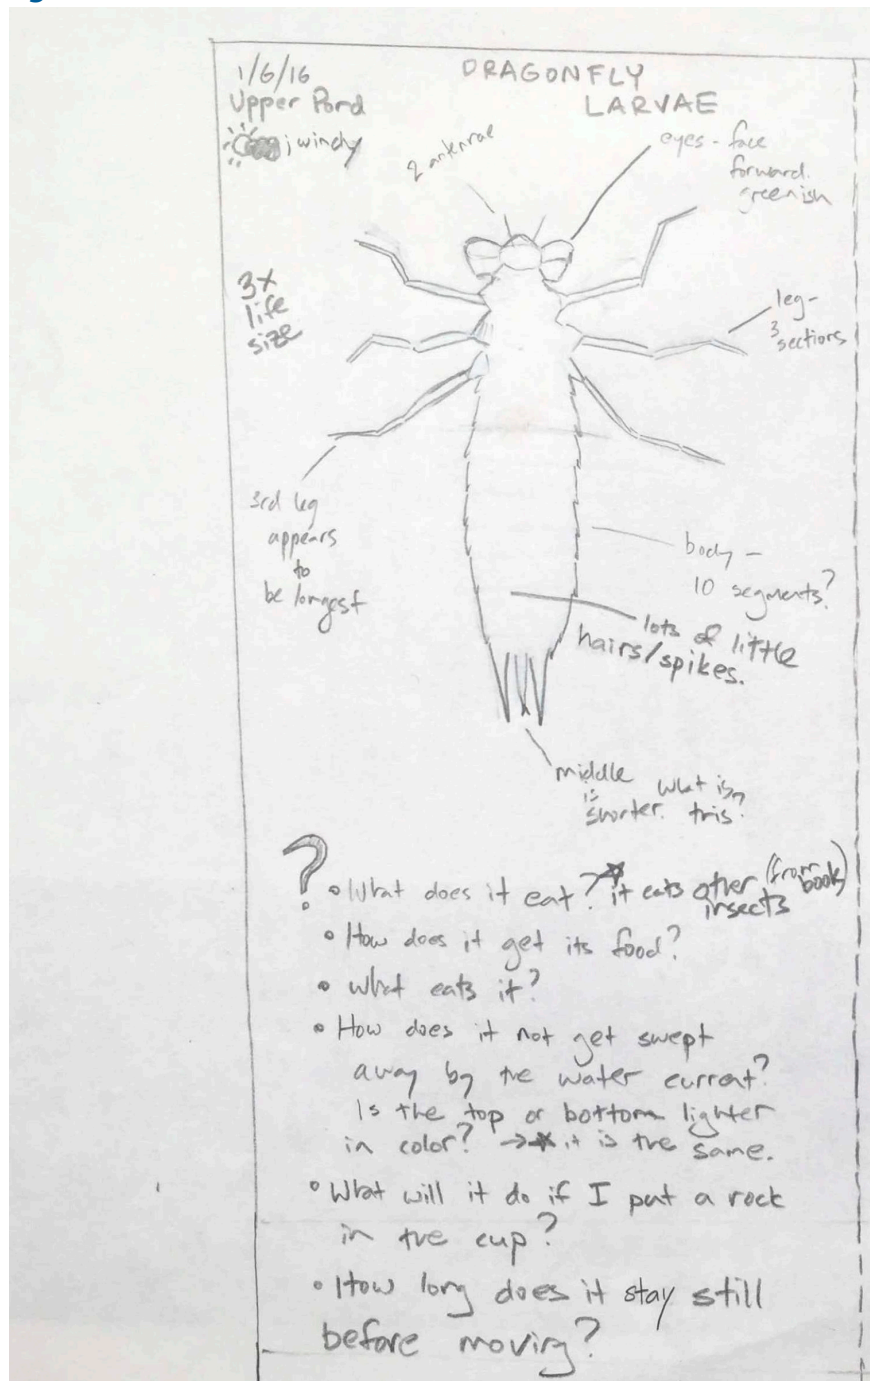 1/6/16
Upper Pond
; windy
DRAGONFLY
LARVAE
2 antennae
eyes - face
forward.
greenish
3x
life
size
leg -
3
sections
3rd leg
appears
to
be longest
body -
10 segments?
lots of little
hairs/spikes.
middle
is
shorter.
what is
this?
?
• What does it eat? ★ it eats other (from book)
insects
• How does it get its food?
• what eats it?
• How does it not get swept
away by the water current?
Is the top or bottom lighter
in color? → ★ it is the same.
• What will it do if I put a rock
in the cup?
• How long does it stay still
before moving?